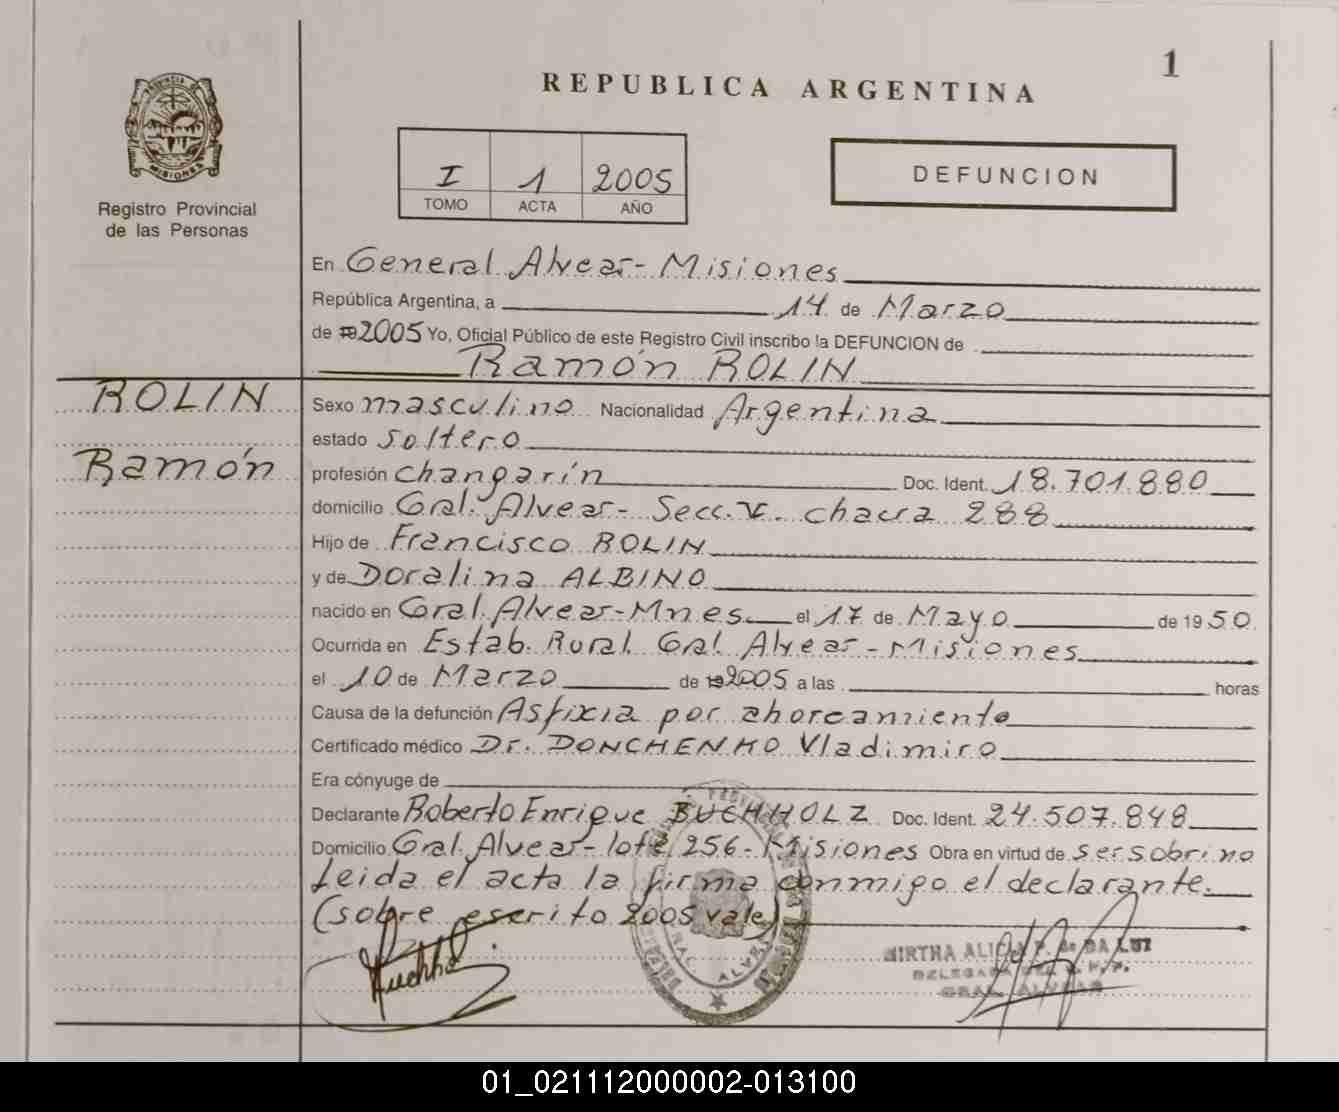 1
REPUBLICA ARGENTINA
PROVINCIA DE MISIONES
Registro Provincial
de las Personas
I 1 2005
TOMO ACTA AÑO
DEFUNCION
En General Alvear - Misiones
República Argentina, a 14 de Marzo
de 19 2005 Yo, Oficial Público de este Registro Civil inscribo la DEFUNCION de
Ramón ROLIN
ROLIN
Ramón
Sexo masculino Nacionalidad Argentina
estado soltero
profesión changarín Doc. Ident. 18.701.880
domicilio Gral. Alvear - Secc. V. chacra 288
Hijo de Francisco ROLIN
y de Doralina ALBINO
nacido en Gral. Alvear - Mnes. el 17 de Mayo de 1950
Ocurrida en Estab. Rural Gral Alvear - Misiones
el 10 de Marzo de 19 2005 a las horas
Causa de la defunción Asfixia por ahorcamiento
Certificado médico Dr. DONCHENKO Vladimiro
Era cónyuge de
Declarante Roberto Enrique BUCHHOLZ Doc. Ident. 24.507.848
Domicilio Gral. Alvear - lote 256 - Misiones Obra en virtud de ser sobrino
Leida el acta la firma conmigo el declarante.
(sobre escrito 2005 vale)
MIRTHA ALICIA P. de DA LUZ
DELEGADA DEL R.P.P.
GRAL. ALVEAR
GRAL. ALVEAR
01_021112000002-013100